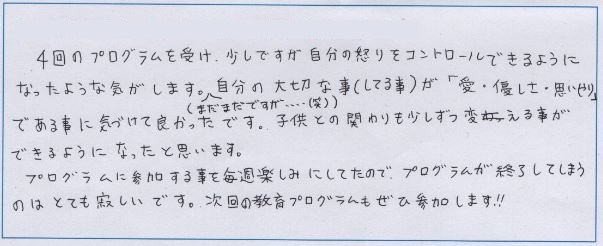 4回のプログラムを受け、少しですが自分の怒りをコントロールできるように
なったような気がします。自分の大切な事(してる事)が「愛・優しさ・思いやり」
(まだまだですが....(笑))
である事に気づけて良かったです。子供との関わりも少しずつ変える事が
できるようになったと思います。
プログラムに参加する事を毎週楽しみにしてたので、プログラムが終了してしまう
のはとても寂しいです。次回の教育プログラムもぜひ参加します!!